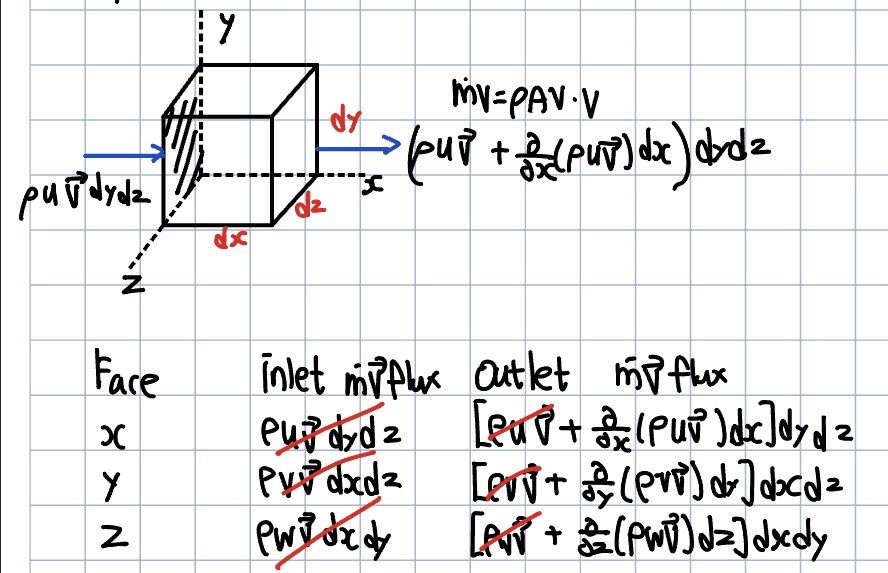 y
ṁV=ρAV·V
dy
(ρuV⃗ + ∂/∂x(ρuV⃗)dx)dydz
ρuV⃗dydz
x
dz
dx
z
Face inlet ṁV⃗flux outlet ṁV⃗ flux
x ρuV⃗dydz [ρuV⃗ + ∂/∂x(ρuV⃗)dx]dydz
y ρvV⃗dxdz [ρvV⃗ + ∂/∂y(ρvV⃗)dy]dxdz
z ρwV⃗dxdy [ρwV⃗ + ∂/∂z(ρwV⃗)dz]dxdy